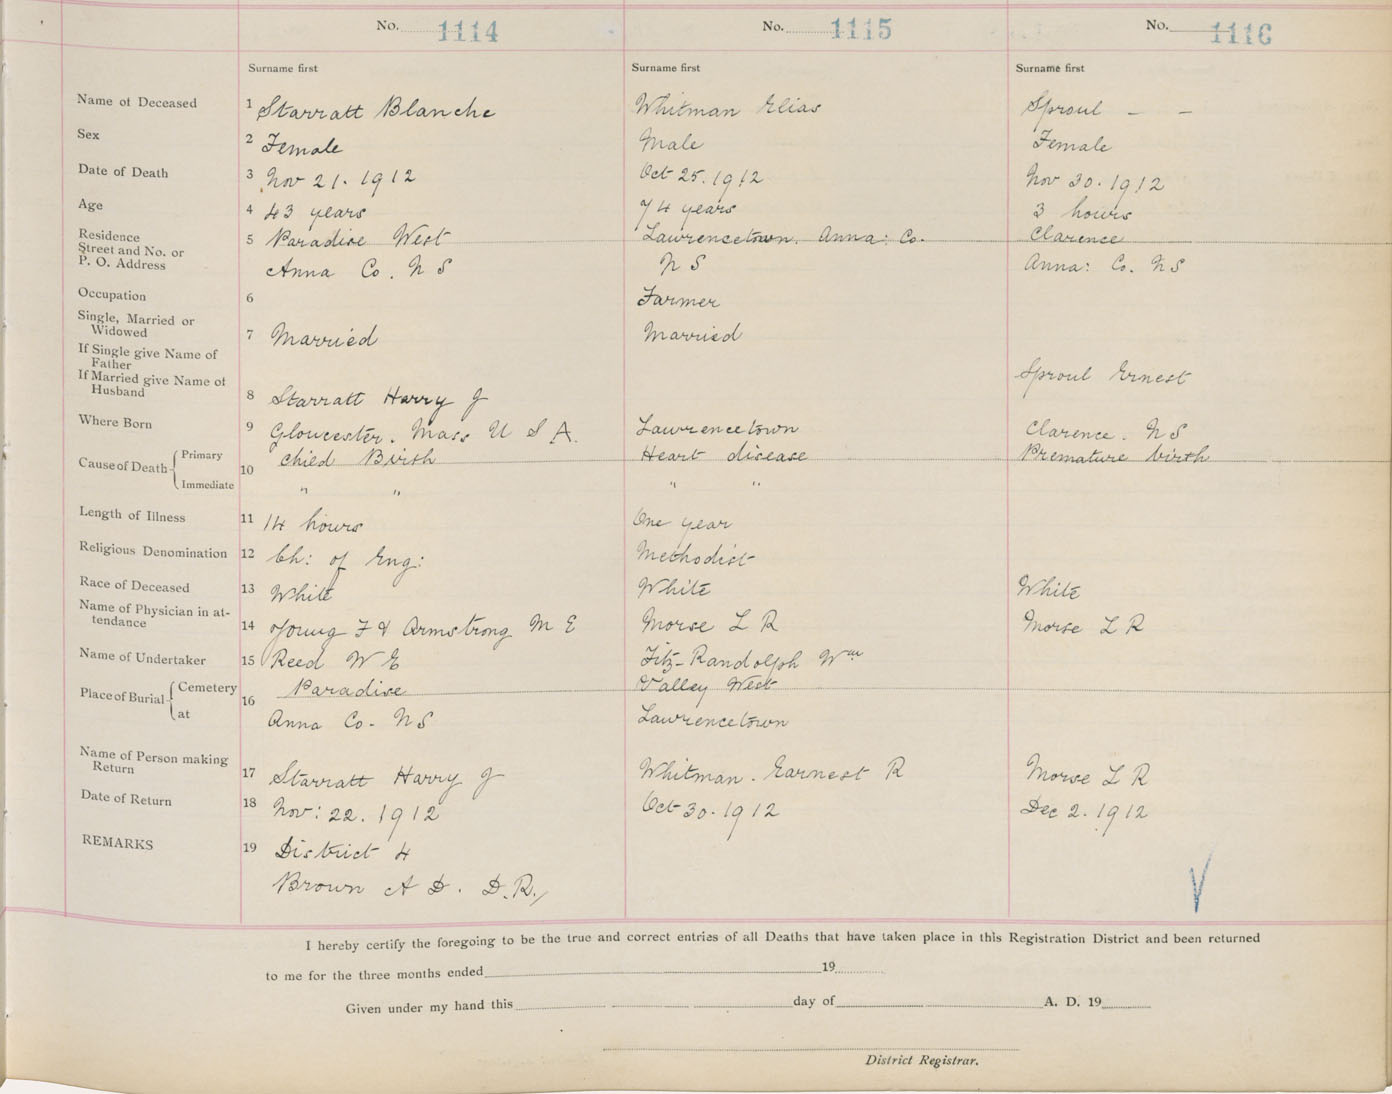 No. 1114 No. 1115 No. 1116
Surname first Surname first Surname first
Name of Deceased 1 Starratt Blanche Whitman Elias Sproul – –
Sex 2 Female Male Female
Date of Death 3 Nov 21. 1912 Oct 25. 1912 Nov 30. 1912
Age 4 43 years 74 years 3 hours
Residence 5 Paradise West Lawrencetown. Anna: Co. Clarence
Street and No. or
P. O. Address Anna Co. N S N S Anna: Co. N S
Occupation 6 Farmer
Single, Married or
Widowed 7 Married Married
If Single give Name of
Father
If Married give Name of Sproul Ernest
Husband 8 Starratt Harry J
Where Born 9 Gloucester. Mass U S A. Lawrencetown Clarence. N S
Cause of Death Primary 10 Child Birth Heart disease Premature birth
Immediate " " " "
Length of Illness 11 14 hours One year
Religious Denomination 12 Ch: of Eng: Methodist
Race of Deceased 13 White White White
Name of Physician in at-
tendance 14 Young F & Armstrong M E Morse L R Morse L R
Name of Undertaker 15 Reed W E Fitz-Randolph Wm
Place of Burial Cemetery 16 Paradise Valley West
at Anna Co. N S Lawrencetown
Name of Person making
Return 17 Starratt Harry J Whitman. Earnest R Morse L R
Date of Return 18 Nov: 22. 1912 Oct 30. 1912 Dec 2. 1912
REMARKS 19 District 4
Brown A D. D.R.
I hereby certify the foregoing to be the true and correct entries of all Deaths that have taken place in this Registration District and been returned
to me for the three months ended 19
Given under my hand this day of A. D. 19
District Registrar.